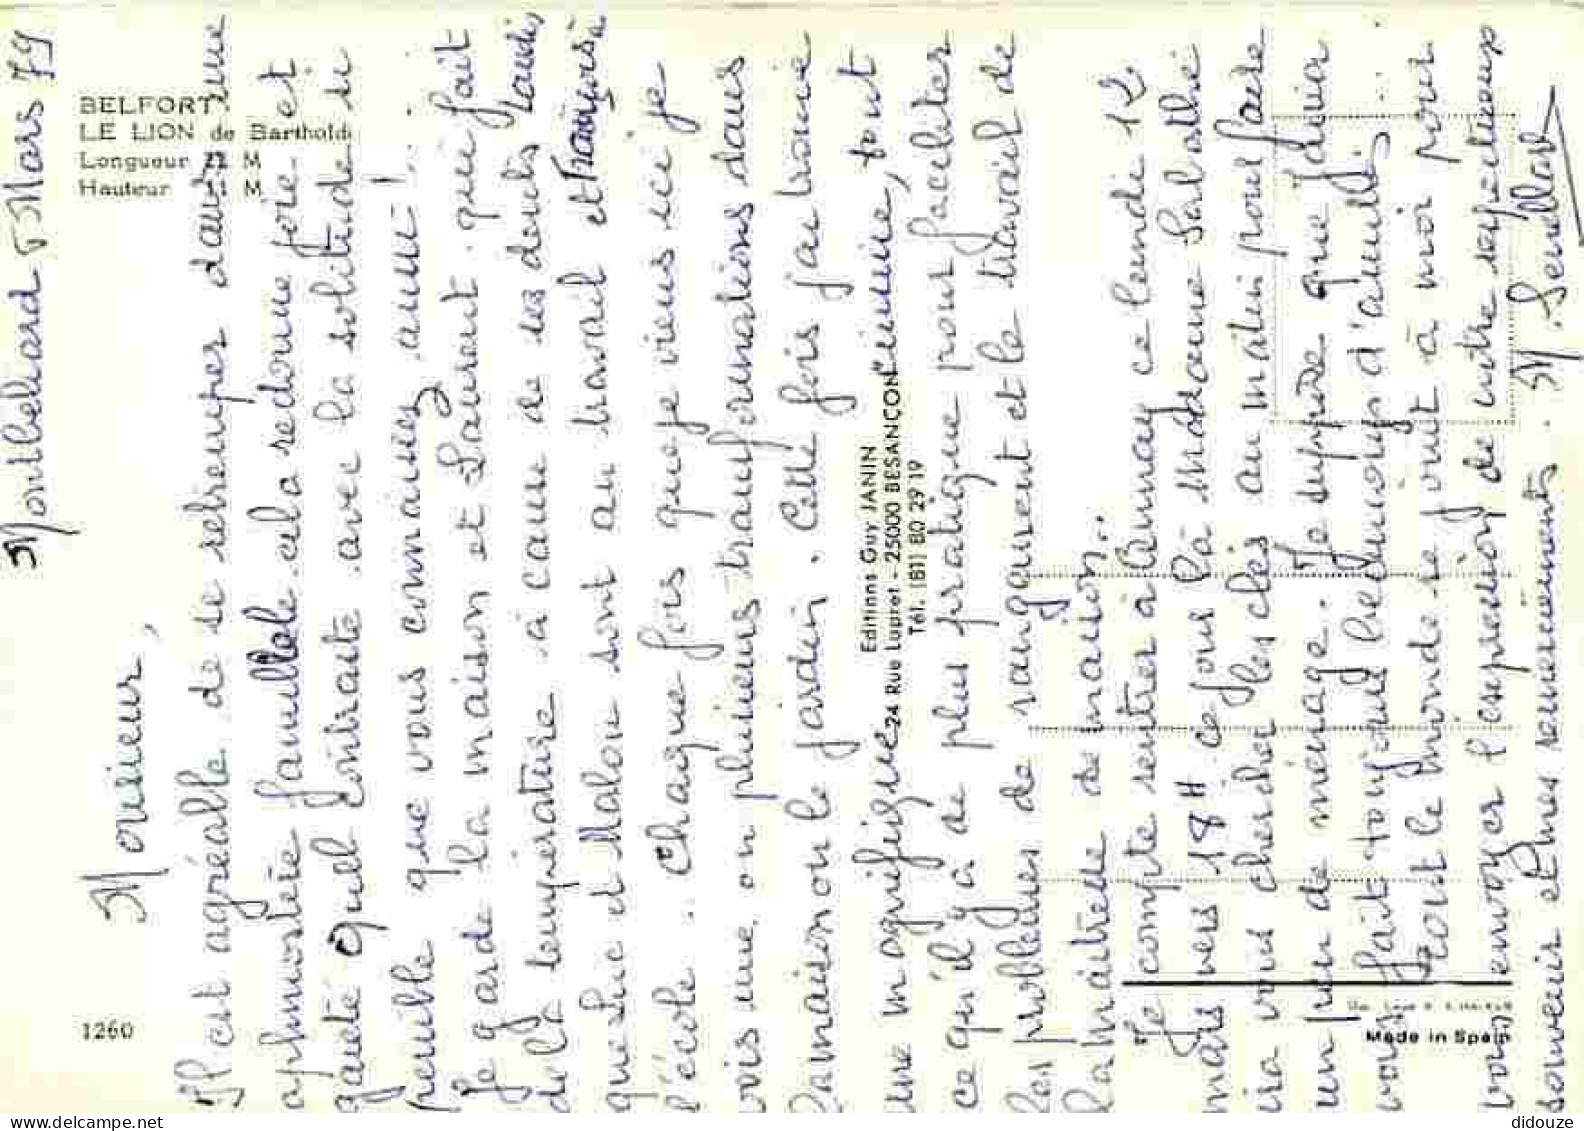 BELFORT
LE LION de Bartholdi
Longueur 22 M
Hauteur 11 M
1260
Editions Guy JANIN
24 Rue Lupret - 25000 BESANÇON
Tél. (81) 80 29 19
Made in Spain
Montbéliard Mars 79
Monsieur,
Il est agréable de se retrouver dans une
atmosphère familiale cela redonne joie et
gaieté quel contraste avec la solitude si
pénible que vous connaissez aussi!
Je garde la maison et Laurent qui fait
de la température à cause de ses dents tandis
que Luc et Malou sont au travail et François à
l'école. Chaque fois que je viens ici je
vois une ou plusieurs transformations dans
la maison ou le jardin. Cette fois j'ai trouvé
une magnifique cuisine, tout
ce qu'il y a de plus pratique pour faciliter
les problèmes de rangement et le travail de
la maîtresse de maison.
Je compte rentrer à ce lundi 12
mars vers 18H ce jour là madame
ira vous chercher les clés au matin pour faire
un peu de ménage. Je suppose que janvier
vous fait toujours beaucoup d'ennuis.
Tout le monde se joint à moi pour
vous envoyer l'expression de notre respectueux
souvenir et mes remerciements.
delcampe.net
didouze